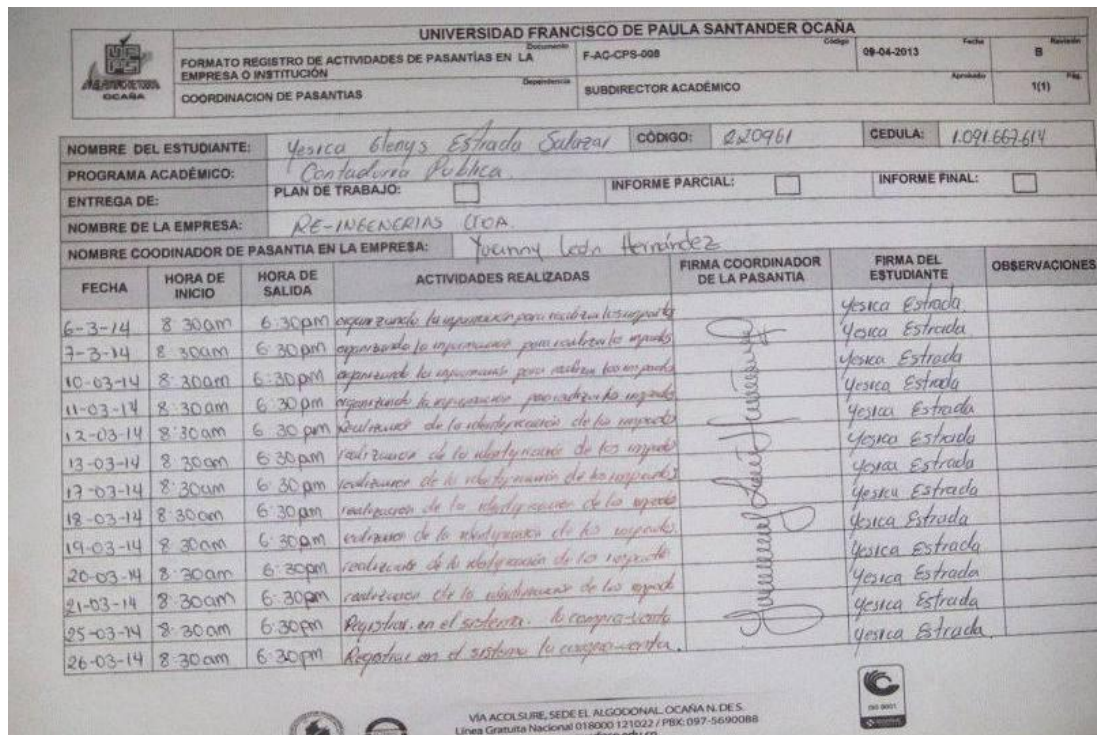 UNIVERSIDAD FRANCISCO DE PAULA SANTANDER OCAÑA
Documento Código Fecha Revisión
FORMATO REGISTRO DE ACTIVIDADES DE PASANTÍAS EN LA EMPRESA O INSTITUCIÓN F-AC-CPS-008 09-04-2013 B
Dependencia Aprobado Pág.
COORDINACION DE PASANTIAS SUBDIRECTOR ACADÉMICO 1(1)
OCAÑA
NOMBRE DEL ESTUDIANTE: Yesica Glenys Estrada Salazar CÓDIGO: 220961 CEDULA: 1.091.667.614
PROGRAMA ACADÉMICO: Contaduria Publica
ENTREGA DE: PLAN DE TRABAJO: INFORME PARCIAL: INFORME FINAL:
NOMBRE DE LA EMPRESA: RE-INGENERIAS LTDA
NOMBRE COODINADOR DE PASANTIA EN LA EMPRESA: León Hernández
FECHA HORA DE INICIO HORA DE SALIDA ACTIVIDADES REALIZADAS FIRMA COORDINADOR DE LA PASANTIA FIRMA DEL ESTUDIANTE OBSERVACIONES
6-3-14 8:30am 6:30pm organizando la información para realizar los Yesica Estrada
7-3-14 8:30am 6:30pm organizando la información para realizar los Yesica Estrada
10-03-14 8:30am 6:30pm organizando la información para realizar los Yesica Estrada
11-03-14 8:30am 6:30pm organizando la información para realizar los Yesica Estrada
12-03-14 8:30am 6:30pm realización de la identificación de los Yesica Estrada
13-03-14 8:30am 6:30pm realización de la identificación de los Yesica Estrada
17-03-14 8:30am 6:30pm realización de la identificación de los Yesica Estrada
18-03-14 8:30am 6:30pm realización de la identificación de los Yesica Estrada
19-03-14 8:30am 6:30pm realización de la identificación de los Yesica Estrada
20-03-14 8:30am 6:30pm realización de la identificación de los Yesica Estrada
21-03-14 8:30am 6:30pm realización de la identificación de los Yesica Estrada
25-03-14 8:30am 6:30pm Registrar en el sistema la compra-venta Yesica Estrada
26-03-14 8:30am 6:30pm Registrar en el sistema la compra-venta. Yesica Estrada
ISO 9001
VÍA ACOLSURE, SEDE EL ALGODONAL, OCAÑA N. DE S.
Línea Gratuita Nacional 018000 121022 / PBX: 097-5690088